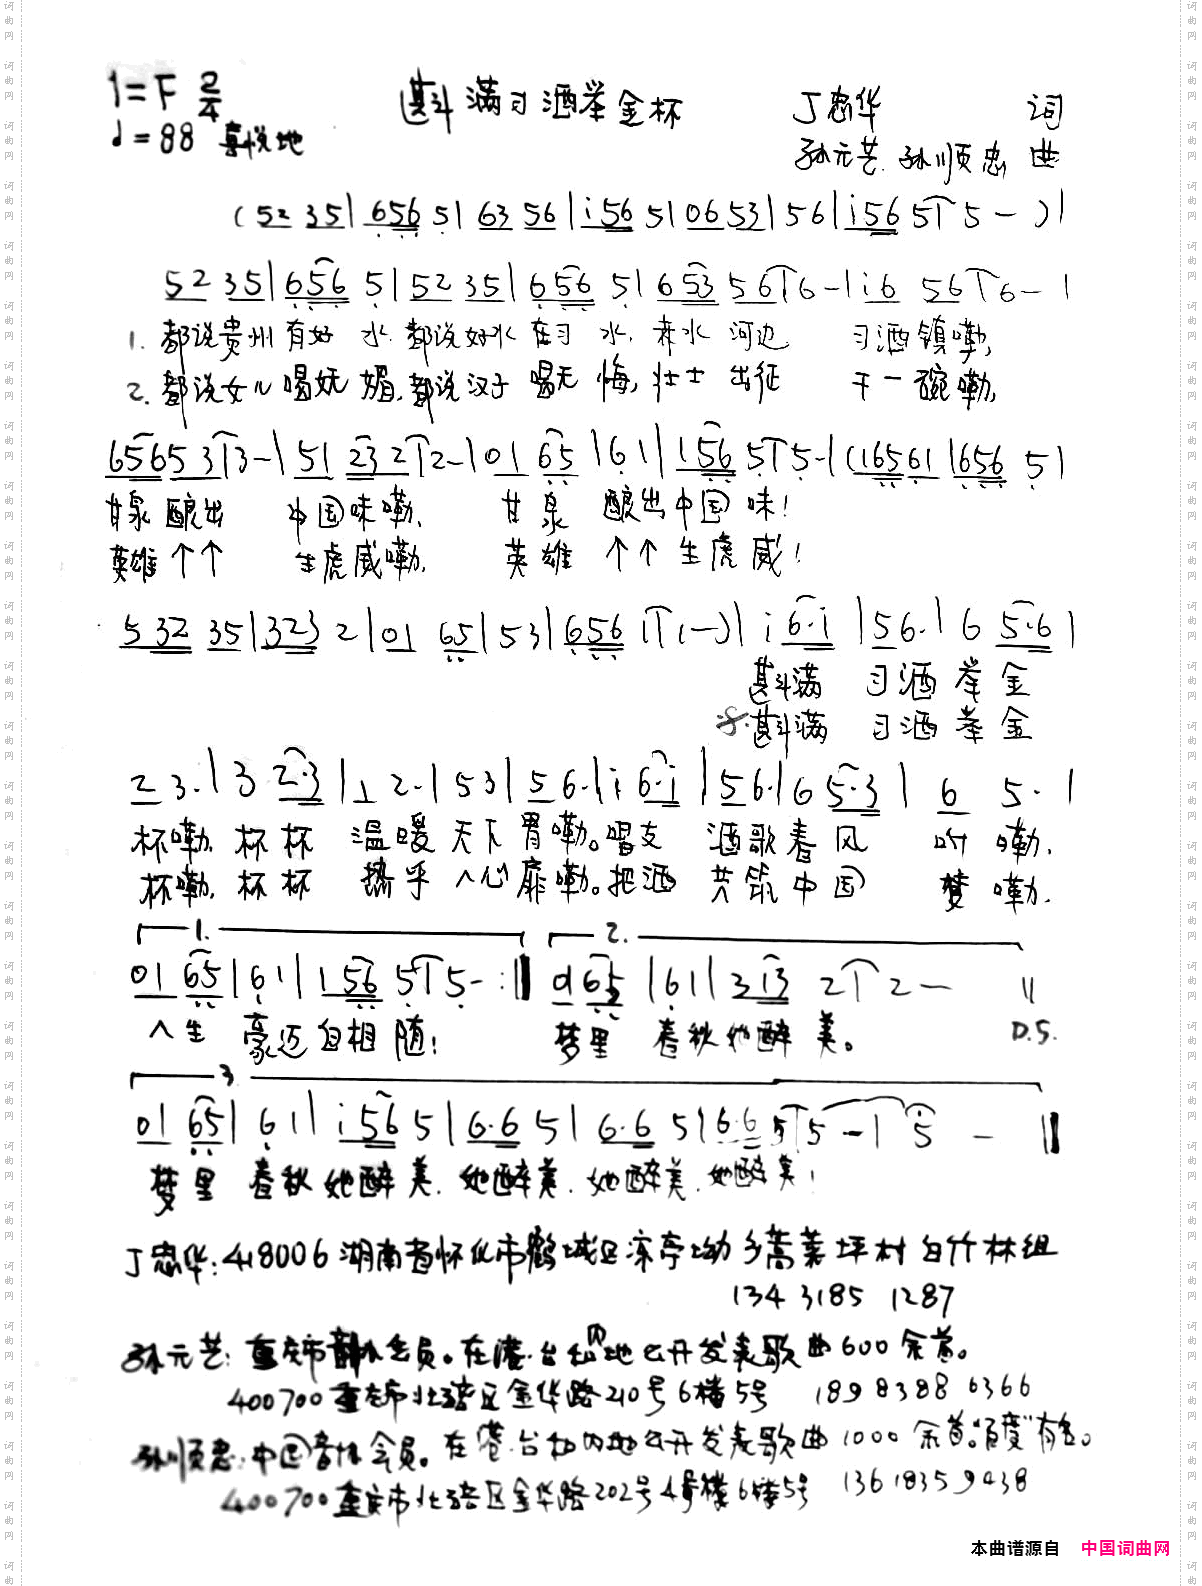 1=F 2/4 斟满习酒举金杯 丁忠华 词
♩=88 喜悦地 孙元芸.孙顺忠 曲
(52 35|656 5|63 56|i56 5|06 53|56|i56 5|5-)|
52 35|656 5|52 35|656 5|653 56|6-|i6 56|6-|
1. 都说贵州有好 水.都说好水在习 水.赤水 河边 习酒镇嘞,
2. 都说女儿喝妩 媚.都说汉子喝无 悔,壮士 出征 干一碗嘞,
6565 3|3-|51 23 2|2-|01 65|61|156 5|5-|(16561|656 5|
甘泉酿出 中国味嘞. 甘泉 酿出中国味!
英雄个个 生虎威嘞. 英雄 个个生虎威!
532 35|323 2|01 65|53|656 1|1-)|i 6·i|56·|6 5·6|
斟满 习酒举金
斟满 习酒举金
23·|3 2·3|12·|53|56·|i 6·i|56·|6 5·3|6 5·|
杯嘞.杯杯 温暖天下胃嘞。唱支 酒歌春风 吹嘞.
杯嘞.杯杯 热乎人心扉嘞。把酒 共筑中国 梦嘞.
1. 2.
01 65|61|156 5|5-:‖01 65|61|313 2|2-‖
人生 豪迈自相随! 梦里 春秋她醉美。 D.S.
3
01 65|61|i56 5|6·6 5|6·6 5|6·6 5|5-|5-‖
梦里 春秋她醉美.她醉美.她醉美.她醉美!
丁忠华:418006湖南省怀化市鹤城区凉亭坳乡蒿菜坪村白竹林组
134 3185 1287
孙元芸:重庆市音协会员。在港.台和内地公开发表歌曲600余首。
400700重庆市北碚区金华路210号6楼5号 189 8388 6366
孙顺忠:中国音协会员。在港.台和内地公开发表歌曲1000余首。"百度"有名。
400700重庆市北碚区金华路202号4号楼6楼5号 13618359438
本曲谱源自 中国词曲网